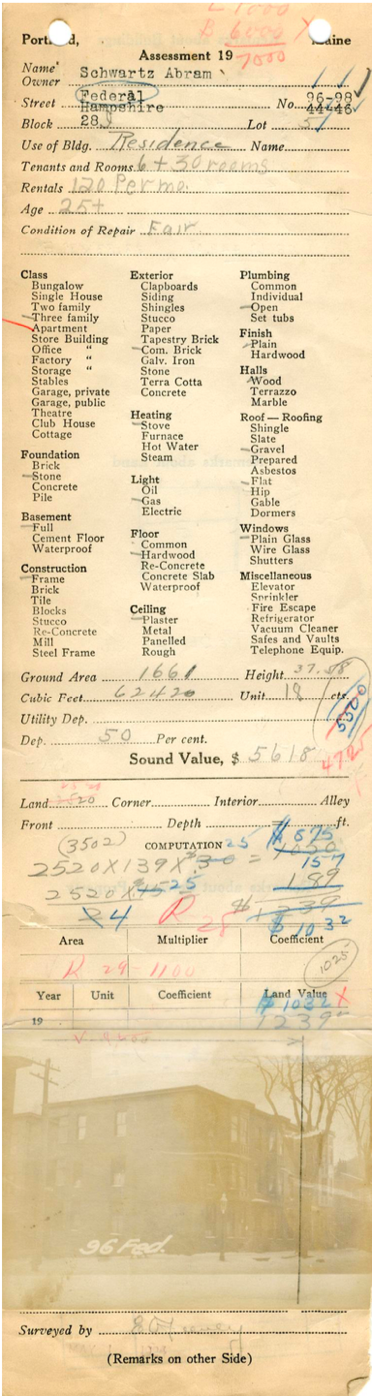 L 1000
B 6000 X
7000
Portland, Maine
Assessment 19
Name Owner Schwartz Abram
Street Federal No. 96-98
Hampshire 44-46
Block 28 J Lot 5
Use of Bldg. Residence Name
Tenants and Rooms 6 + 30 rooms
Rentals 120 Per mo.
Age 25+
Condition of Repair Fair
Class
Bungalow
Single House
Two family
Three family
Apartment
Store Building
Office "
Factory "
Storage "
Stables
Garage, private
Garage, public
Theatre
Club House
Cottage
Foundation
Brick
Stone
Concrete
Pile
Basement
Full
Cement Floor
Waterproof
Construction
Frame
Brick
Tile
Blocks
Stucco
Re-Concrete
Mill
Steel Frame
Exterior
Clapboards
Siding
Shingles
Stucco
Paper
Tapestry Brick
Com. Brick
Galv. Iron
Stone
Terra Cotta
Concrete
Heating
Stove
Furnace
Hot Water
Steam
Light
Oil
Gas
Electric
Floor
Common
Hardwood
Re-Concrete
Concrete Slab
Waterproof
Ceiling
Plaster
Metal
Panelled
Rough
Plumbing
Common
Individual
Open
Set tubs
Finish
Plain
Hardwood
Halls
Wood
Terrazzo
Marble
Roof — Roofing
Shingle
Slate
Gravel
Prepared
Asbestos
Flat
Hip
Gable
Dormers
Windows
Plain Glass
Wire Glass
Shutters
Miscellaneous
Elevator
Sprinkler
Fire Escape
Refrigerator
Vacuum Cleaner
Safes and Vaults
Telephone Equip.
Ground Area 1661 Height 37.58
Cubic Feet 62420 Unit 18 cts.
Utility Dep. 5500
Dep. 50 Per cent. 4925
Sound Value, $ 5618
Land 2520 Corner Interior Alley
Front Depth ft.
(3502) COMPUTATION 25 875
2520 X 139 X = 1020
157
2520 X 25 189
24 R 28 1239
$ 1032
Area Multiplier Coefficient
R 29 - 1100 1025
Year Unit Coefficient Land Value
$ 1032 X
19 1239
96 Fed.
Surveyed by
(Remarks on other Side)